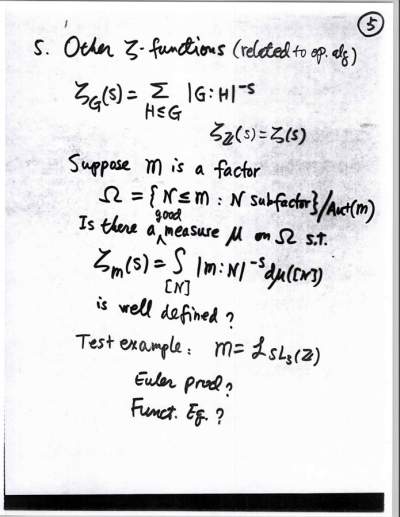 5
5. Other ζ-functions (related to op. alg)
ζ_G(s) = Σ_{H≤G} |G:H|^{-s}
ζ_ℤ(s) = ζ(s)
Suppose M is a factor
Ω = {N ≤ M : N subfactor}/Aut(M)
Is there a good measure μ on Ω s.t.
ζ_M(s) = ∫_{[N]} |M:N|^{-s} dμ([N])
is well defined?
Test example: M = ℒ SL₃(ℤ)
Euler prod?
Funct. Eq.?